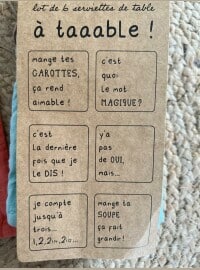 lot de 6 serviettes de table
à taaable !
mange tes
CAROTTES,
ça rend
aimable !
c'est
quoi
le mot
MAGIQUE ?
c'est
la dernière
fois que je
le DIS !
y'a
pas
de OUI,
mais...
je compte
jusqu'à
trois...
1, 2, 2
mange ta
SOUPE
ça fait
grandir !